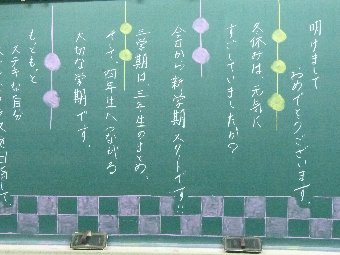 明けまして
おめでとうございます。
冬休みは、元気に
すごしていましたか？
今日から新学期スタートです!!
三学期は、三年生のまとめ、
そして四年生へつながる
大切な学期です。
もっともっと
ステキな自分